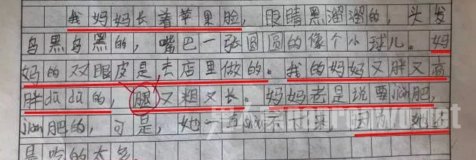 我妈妈长着苹果脸，眼睛黑溜溜的，头发
乌黑乌黑的，嘴巴一张圆圆的像个小球儿。妈
妈的双眼皮是去店里做的。我的妈妈又胖又高
胖dūdū的，腿又粗又长。妈妈老是说要减肥，
减肥的，可是，她一直
是吃的太多。